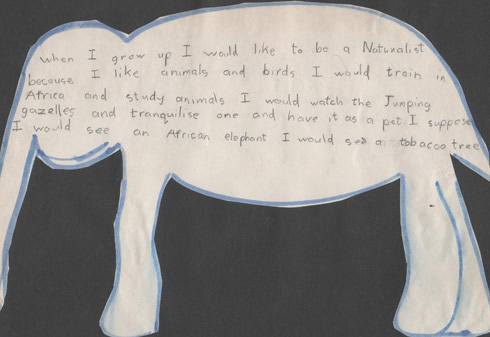 when I grow up I would like to be a Naturalist
because I like animals and birds I would train in
Africa and study animals I would watch the Jumping
gazelles and tranquilise one and have it as a pet I suppose
I would see an African elephant I would see a tobacoo tree